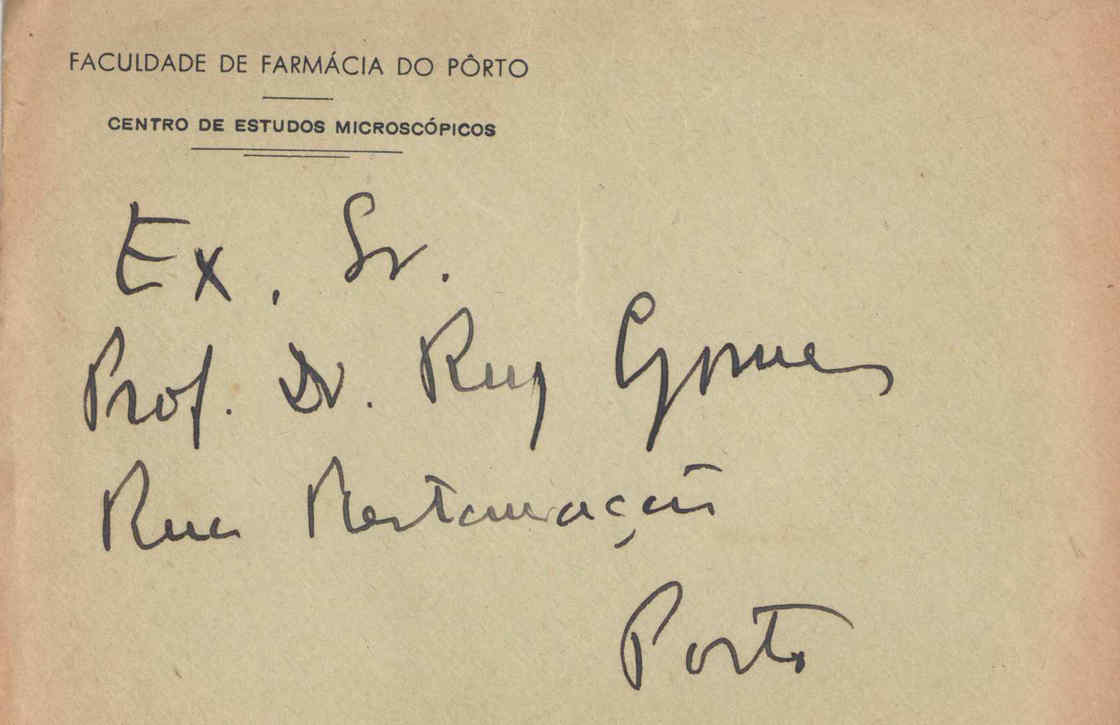 FACULDADE DE FARMÁCIA DO PÔRTO
CENTRO DE ESTUDOS MICROSCÓPICOS
Ex. Sr.
Prof. Dr. Ruy Gomes
Rua Restauração
Porto